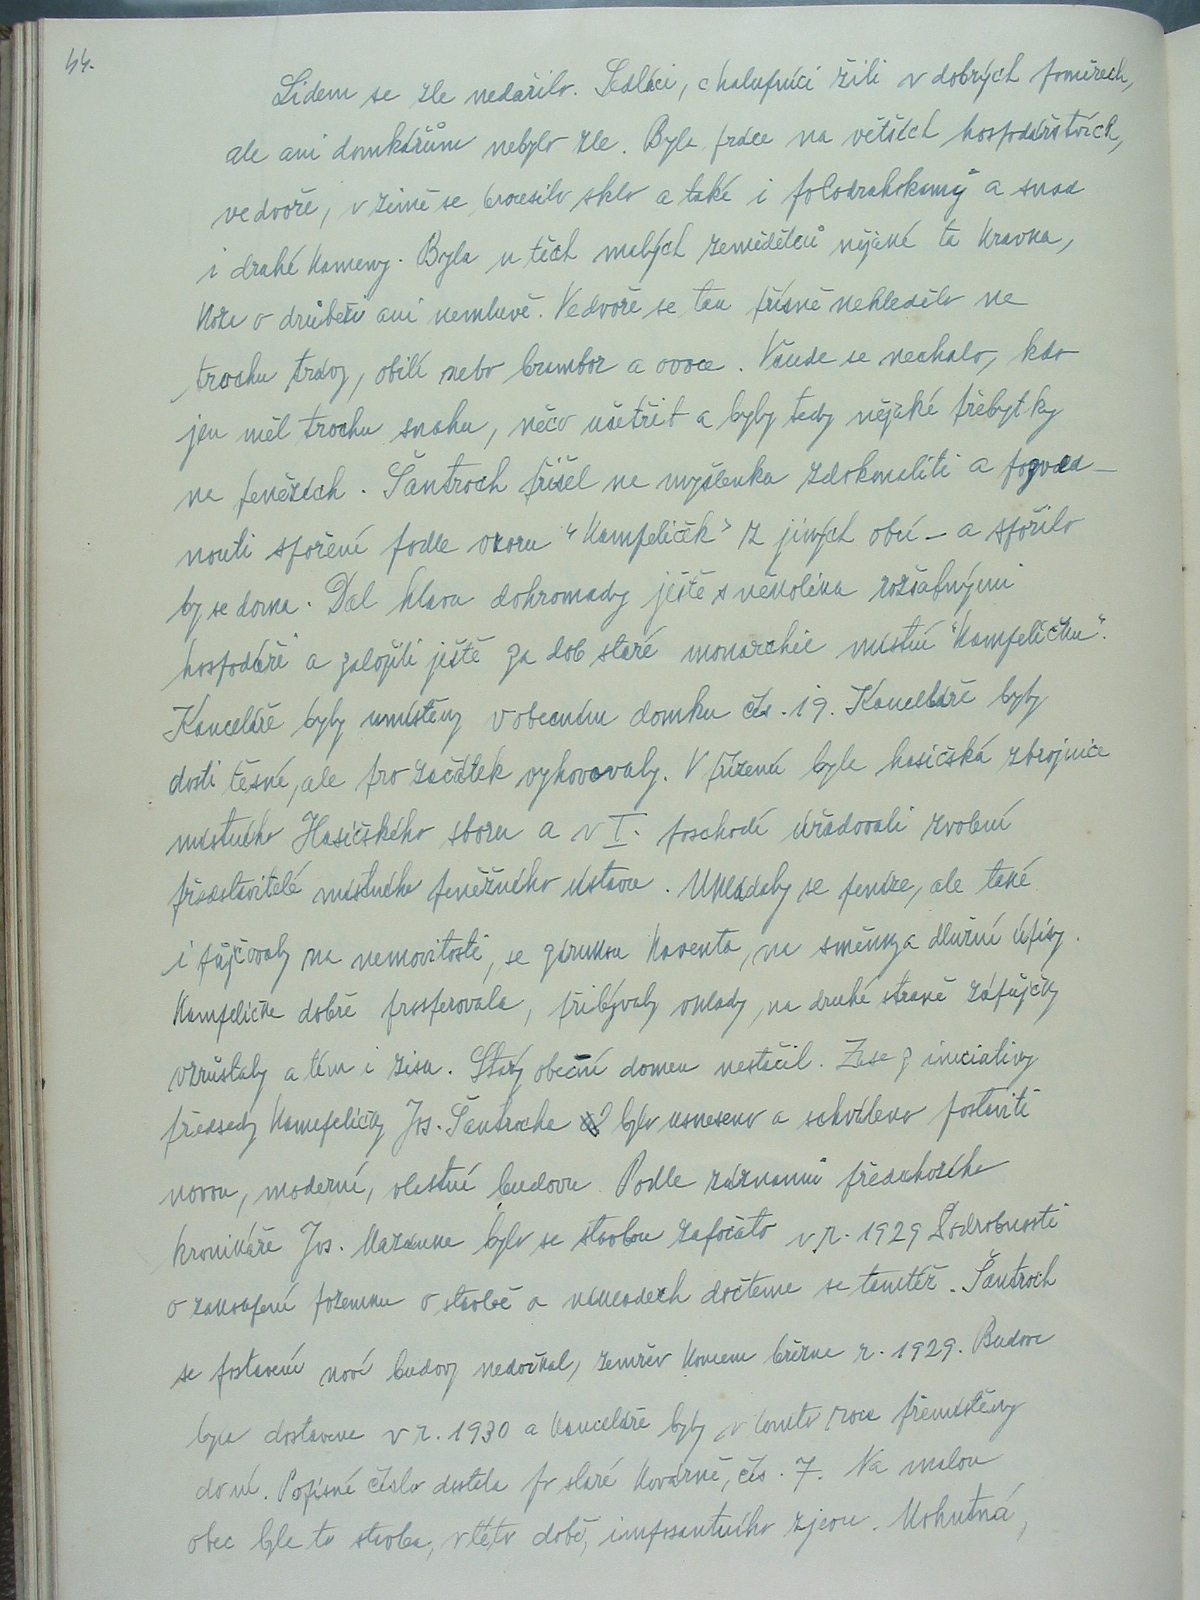 44.
Lidem se zle nedařilo. Sedláci, chalupníci žili v dobrých poměrech,
ale ani domkářům nebylo zle. Byla práce na větších hospodářstvích,
ve dvoře, v zimě se brousilo sklo a také i polodrahokamy a snad
i drahé kameny. Byla u těch malých zemědělců nějaká ta kravka,
koze o drůbeži ani nemluvě. Ve dvoře se tak přísně nehledělo na
trochu trávy, obilí nebo brambor a ovoce. Všude se nechalo, kdo
jen měl trochu snahu, něco ušetřit a byly tedy nějaké přebytky
na penězích. Šantroch přišel na myšlenku zdokonaliti a pozved-
nouti spoření podle vzoru "Kampeliček" z jiných obcí - a spořilo
by se doma. Dal hlavu dohromady ještě s několika rozšafnými
hospodáři a založili ještě za dob staré monarchie místní "Kampeličku".
Kanceláře byly umístěny v obecním domku čís. 19. Kanceláře byly
dosti těsné, ale pro začátek vyhovovaly. V přízemí byla hasičská zbrojnice
místního Hasičského sboru a v I. poschodí úřadovali zvolení
představitelé místního peněžního ústavu. Ukládaly se peníze, ale také
i půjčovaly na nemovitosti, se zárukou kaventa, na směnky a dlužní úpisy.
Kampelička dobře prosperovala, přibývaly vklady, na druhé straně zápůjčky
vzrůstaly a tím i zisk. Starý obecní domek nestačil. Zase z iniciativy
předsedy Kampeličky Jos. Šantrocha bylo usneseno a schváleno postaviti
novou, moderní, vlastní budovu. Podle záznamů předchozího
kronikáře Jos. Mazánka bylo se stavbou započato v r. 1929 Podrobnosti
o zakoupení pozemku o stavbě a nákladech dočteme se tamtéž. Šantroch
se postavení nové budovy nedočkal, zemřev koncem března r. 1929. Budova
byla dostavena v r. 1930 a kanceláře byly v tomto roce přemístěny
do ní. Popisné číslo dostala po staré kovárně, čís. 7. Na malou
obec byla to stavba, v této době, imposantního zjevu. Mohutná,